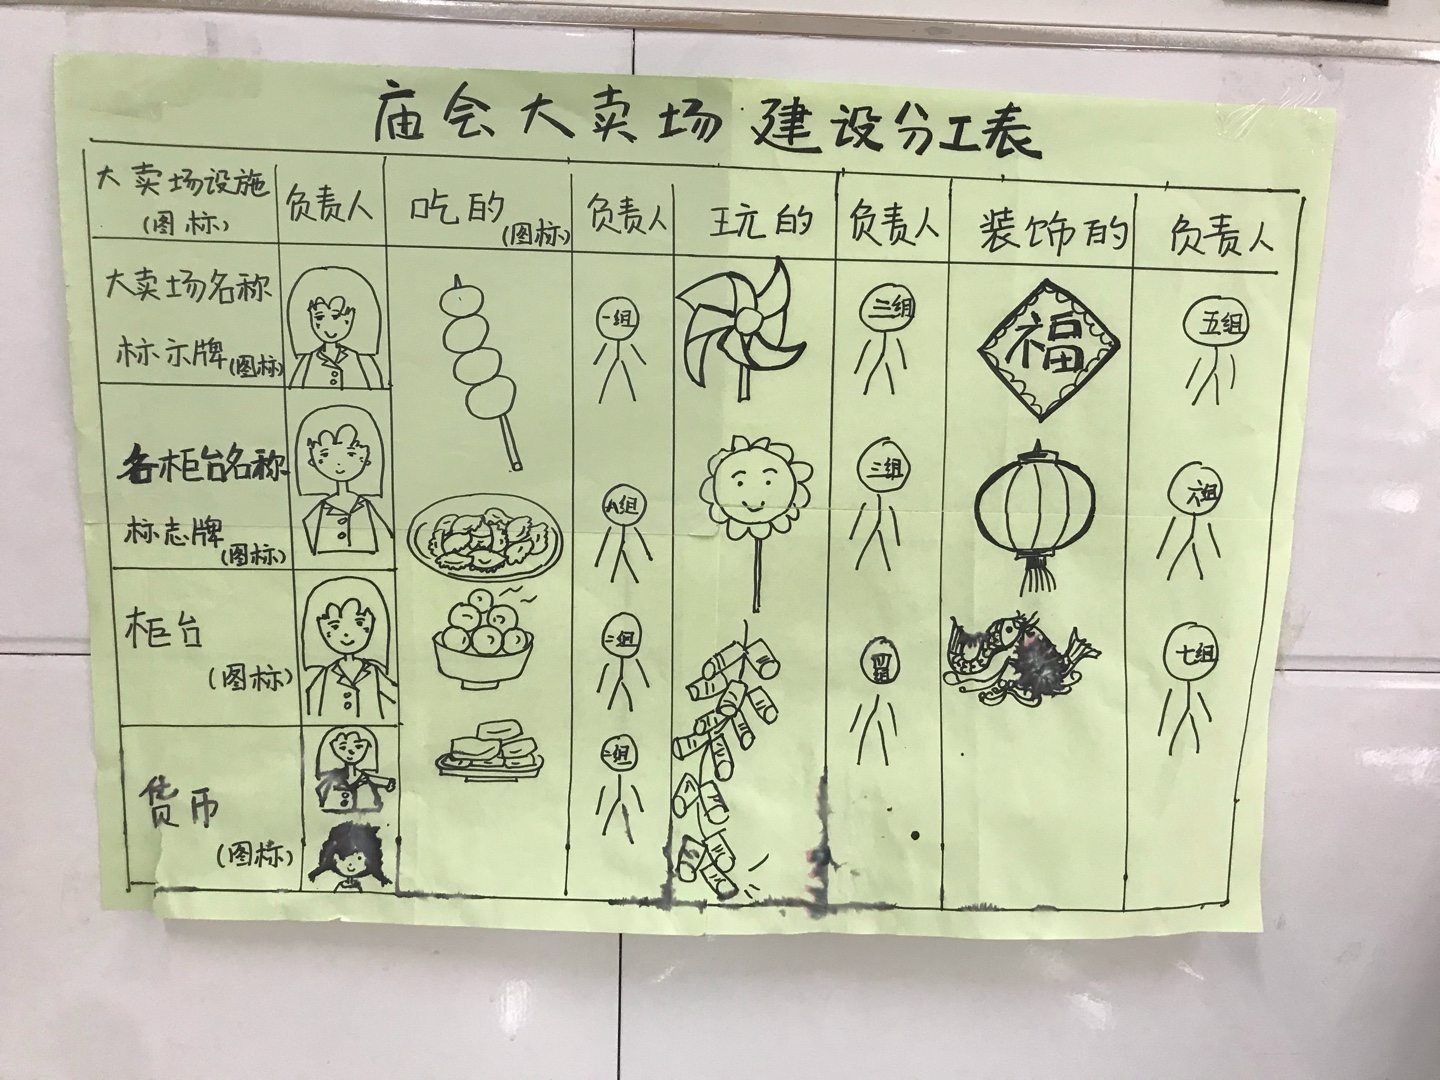 庙会大卖场建设分工表
大卖场设施 负责人 吃的 负责人 玩的 负责人 装饰的 负责人
(图标) (图标)
大卖场名称
标示牌(图标)
一组 三组 福 五组
各柜台名称
标志牌
(图标)
三组 六组
柜台
(图标)
二组 四组 七组
货币
(图标)
二组